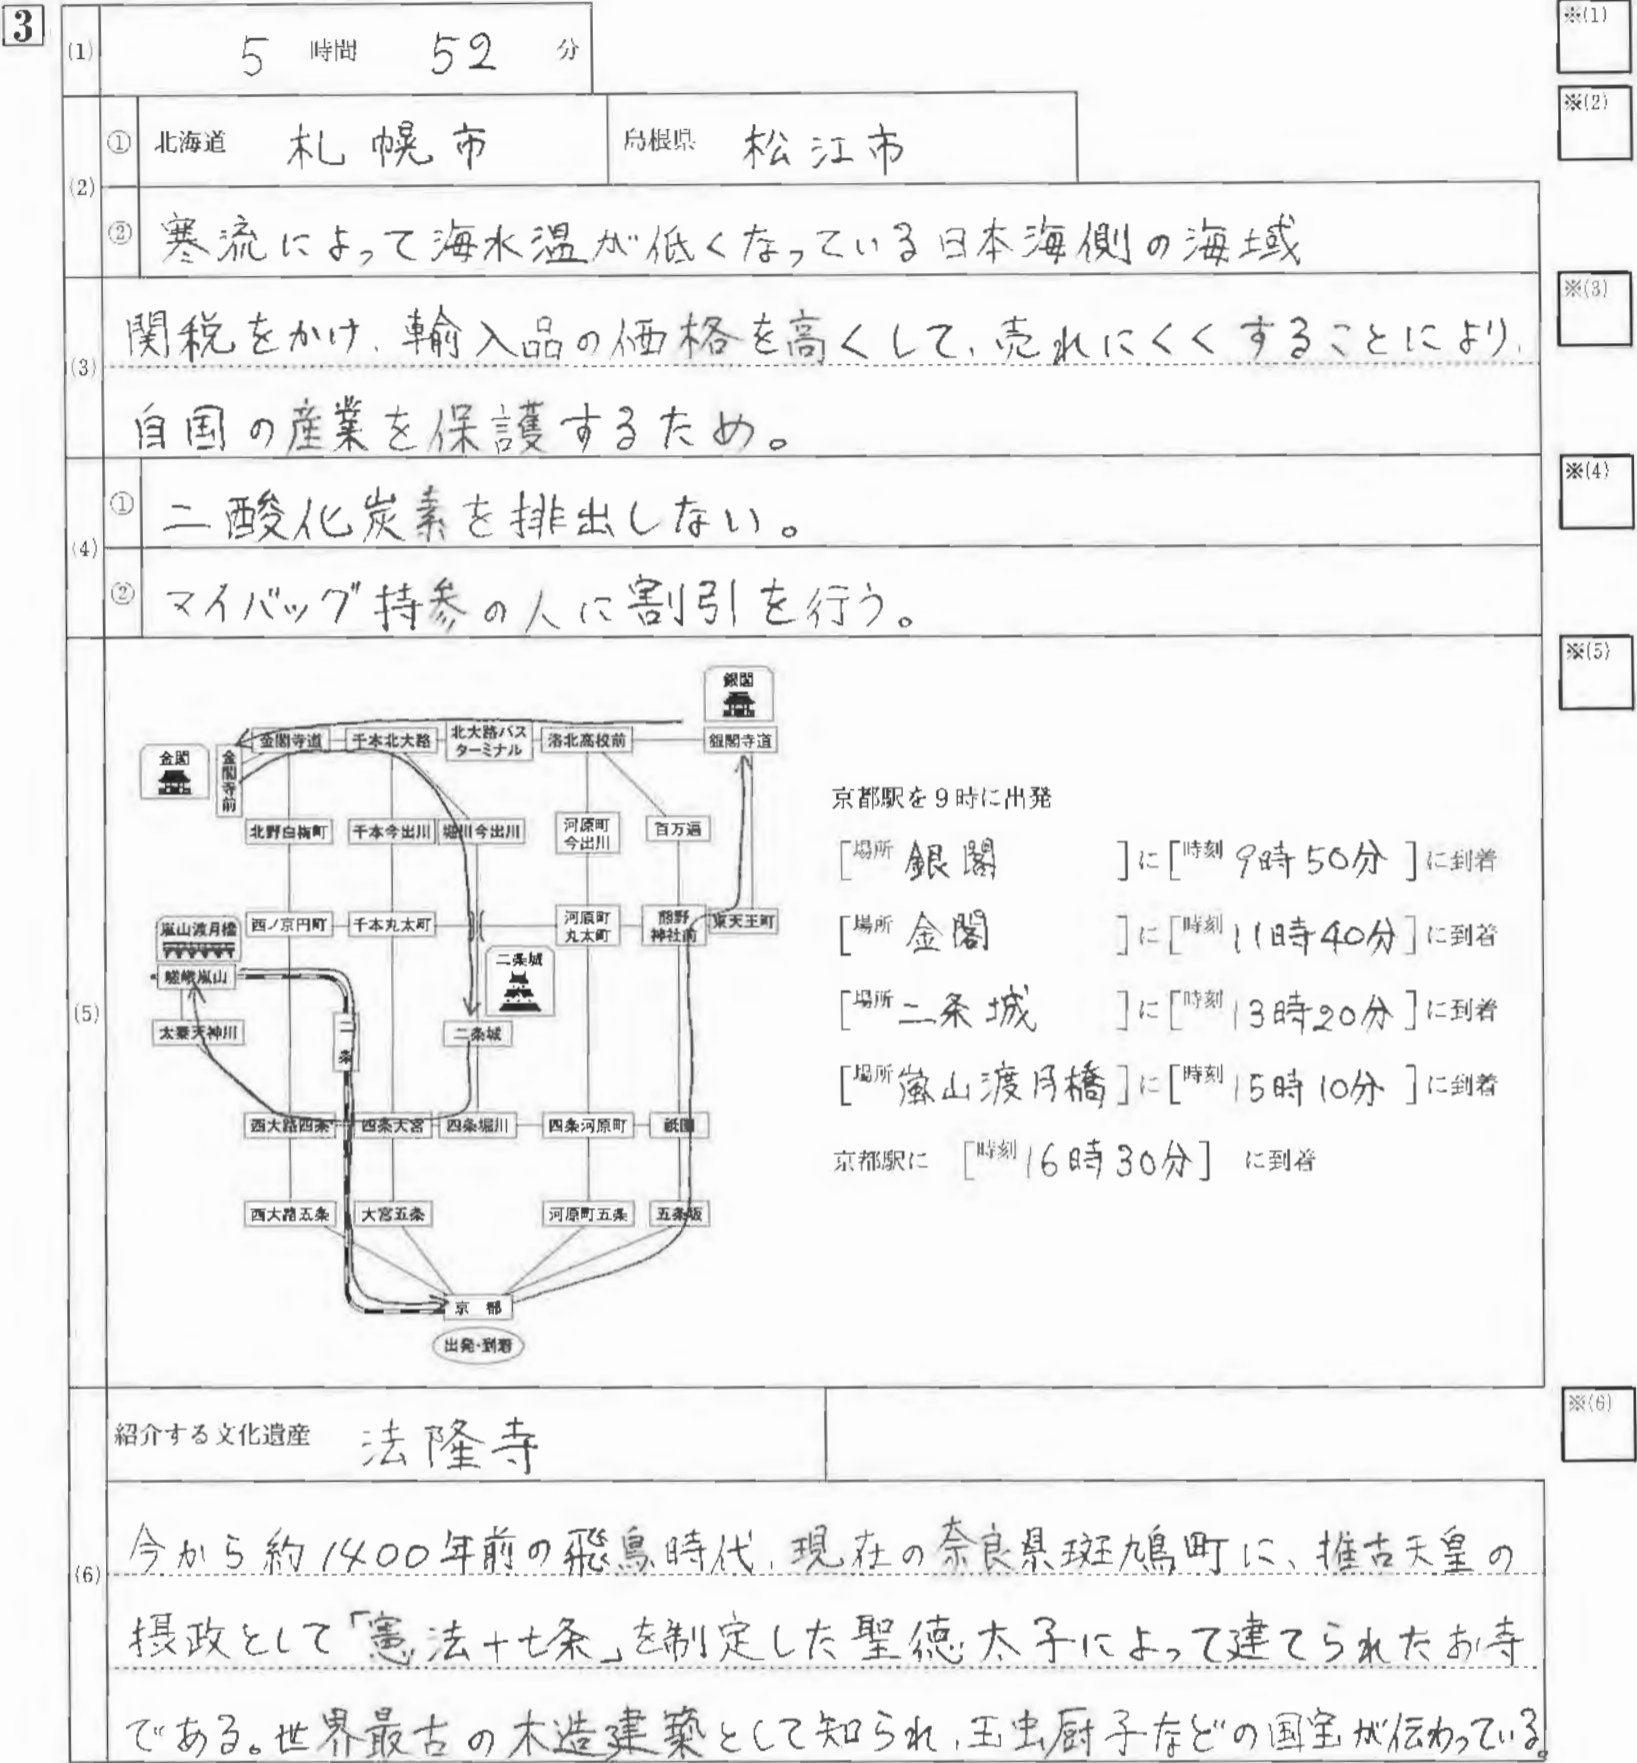 3
(1) 5 時間 52 分
※(1)
(2) ① 北海道 札幌市 島根県 松江市
※(2)
② 寒流によって海水温が低くなっている日本海側の海域
(3) 関税をかけ、輸入品の価格を高くして、売れにくくすることにより、
自国の産業を保護するため。
※(3)
(4) ① 二酸化炭素を排出しない。
※(4)
② マイバッグ持参の人に割引を行う。
(5)
※(5)
銀閣
金閣
金閣寺前
金閣寺道
千本北大路
北大路バス
ターミナル
洛北高校前
銀閣寺道
北野白梅町
千本今出川
堀川今出川
河原町
今出川
百万遍
嵐山渡月橋
嵯峨嵐山
西ノ京円町
千本丸太町
河原町
丸太町
熊野
神社前
東天王町
二条城
太秦天神川
二条
二条城
西大路四条
四条大宮
四条堀川
四条河原町
祇園
西大路五条
大宮五条
河原町五条
五条坂
京都
出発・到着
京都駅を9時に出発
[場所 銀閣 ]に[時刻 9時50分 ]に到着
[場所 金閣 ]に[時刻 11時40分 ]に到着
[場所 二条城 ]に[時刻 13時20分 ]に到着
[場所 嵐山渡月橋 ]に[時刻 15時10分 ]に到着
京都駅に [時刻 16時30分] に到着
(6) 紹介する文化遺産 法隆寺
※(6)
今から約1400年前の飛鳥時代、現在の奈良県斑鳩町に、推古天皇の
摂政として「憲法十七条」を制定した聖徳太子によって建てられたお寺
である。世界最古の木造建築として知られ、玉虫厨子などの国宝が伝わっている。